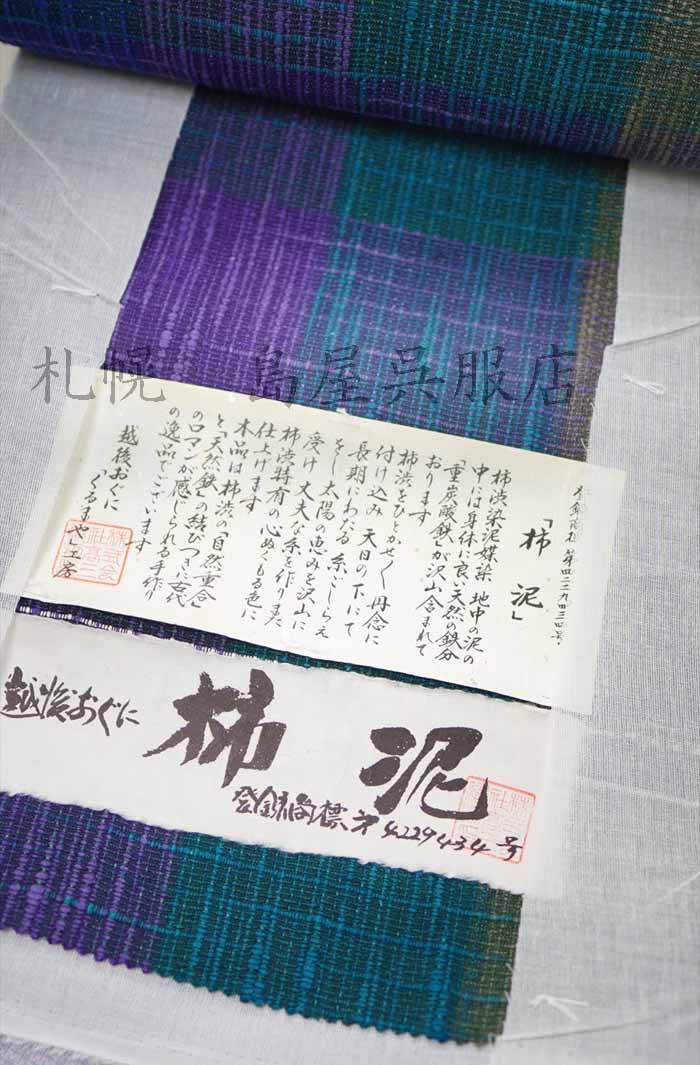 札幌 島屋呉服店
登録商標 第四二二九四三四号
「柿 泥」
柿渋染泥媒染 地中の泥の
中には身体に良い天然の鉄分
「重炭酸鉄」が沢山含まれて
おります
柿渋をひとかせづく 丹念に
付け込み 天日の下にて
長期にわたる 糸ごしらえ
をし 太陽の恵みを沢山に
受け 丈夫な糸を作りまた
柿渋特有の心ぬくもる色に
仕上げます
本品は柿渋の「自然重合」
と「天然鉄」の結びつきに古代
のロマンが感じられる手作り
の逸品でございます
越後おぐに
「くるまや」工房
越後おぐに 柿 泥
登録商標 第4229434号